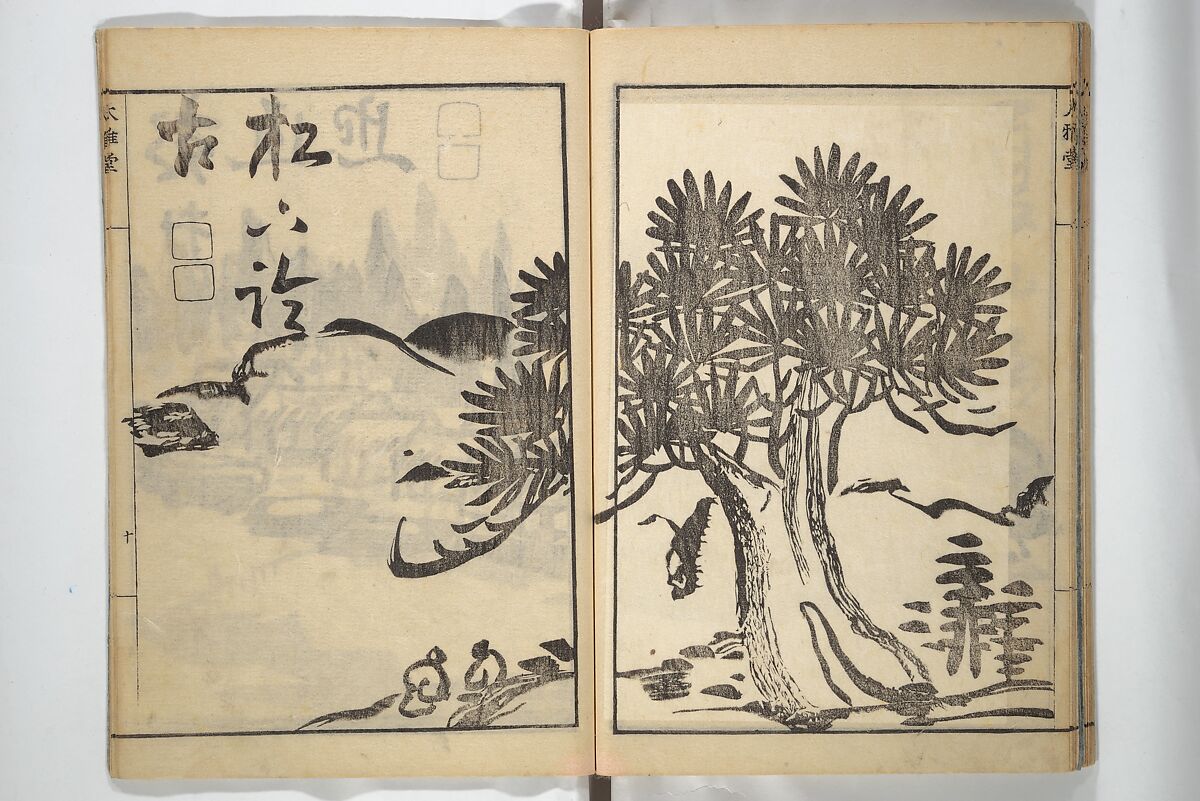 大雅堂
松下論
古
大雅堂
十